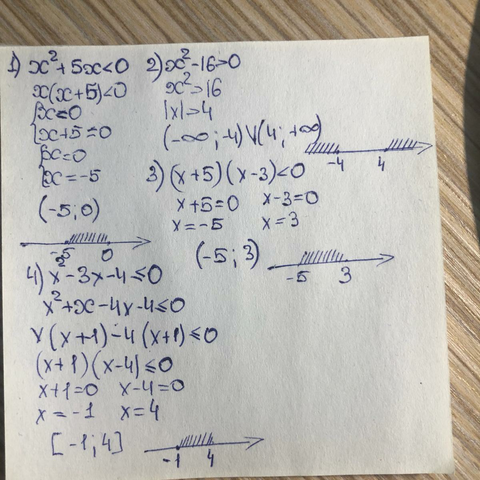 1) x²+5x<0
x(x+5)<0
{x=0
{x+5=0
{x=0
{x=-5
(-5;0)
-5 0
2) x²-16>0
x²>16
|x|>4
(-∞;-4)∨(4;+∞)
-4 4
3) (x+5)(x-3)<0
x+5=0 x-3=0
x=-5 x=3
(-5;3)
-5 3
4) x²-3x-4≤0
x²+x-4x-4≤0
x(x+1)-4(x+1)≤0
(x+1)(x-4)≤0
x+1=0 x-4=0
x=-1 x=4
[-1;4]
-1 4